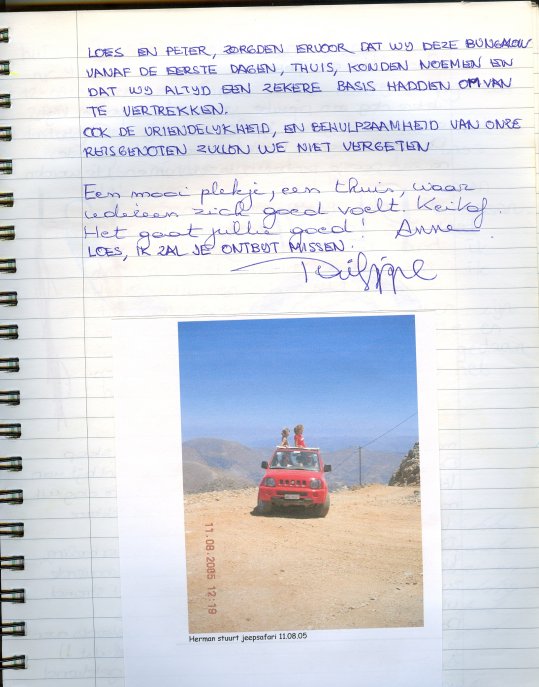 LOES EN PETER, ZORGDEN ERVOOR DAT WIJ DEZE BUNGALOW
VANAF DE EERSTE DAGEN, THUIS, KONDEN NOEMEN EN
DAT WIJ ALTIJD EEN ZEKERE BASIS HADDEN OM VAN
TE VERTREKKEN.
OOK DE VRIENDELIJKHEID, EN BEHULPZAAMHEID VAN ONZE
REISGENOTEN ZULLEN WE NIET VERGETEN
Een mooi plekje, een thuis, waar
iedereen zich goed voelt.
Het gaat jullie goed! Anne
LOES, IK ZAL JE ONTBIJT MISSEN.
Philippe
11.08.2005 12:19
Herman stuurt jeepsafari 11.08.05